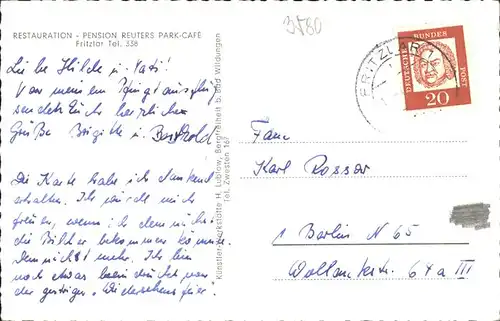 3580
RESTAURATION - PENSION REUTERS PARK-CAFÉ
Fritzlar Tel. 338
Liebe Hilde u.
Von meinem Pfingstausflug
sendet Euch herzliche
Grüße Brigitte u. Berthold
Die Karte habe ich dankend
erhalten. Ich würde mich
freuen, wenn ich
die Bilder bekommen könnte.
nicht mehr. Ich bin
noch etwas beeindruckt von
der gestrigen "Wiedersehensfeier".
Künstler-Werkstätte H. Lubłow, Bergfreiheit b. Bad Wildungen
Tel. Zwesten 167
FRITZLAR 1
DEUTSCHE BUNDESPOST
20
Fam.
Karl Rosser
1 Berlin N 65
Wollankstr. 64a III